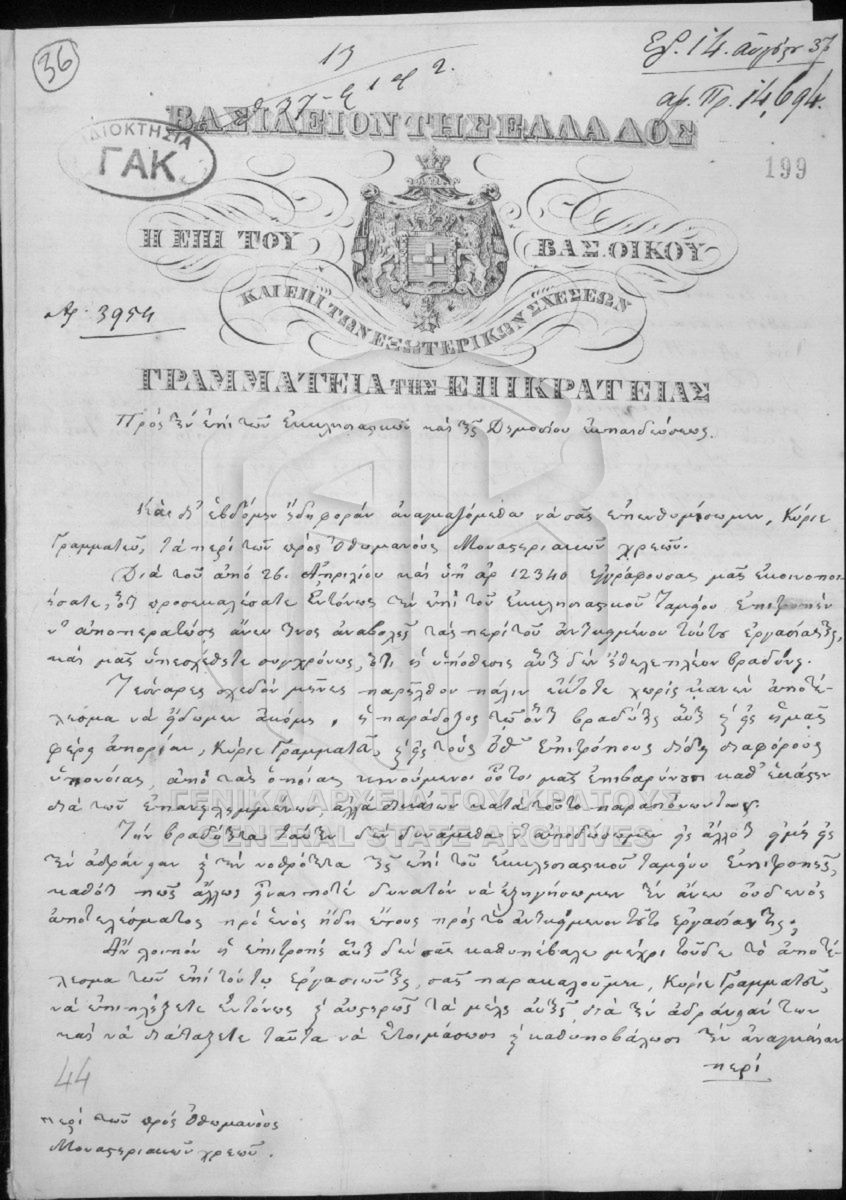 36
13
Ελ. 14 αὐγούσ. 37
αρ. Πρ. 14,694.
ΒΑΣΙΛΕΙΟΝ ΤΗΣ ΕΛΛΑΔΟΣ
ΙΔΙΟΚΤΗΣΙΑ
ΓΑΚ
199
Η ΕΠΙ ΤΟΥ ΒΑΣ. ΟΙΚΟΥ
ΚΑΙ ΕΠΙ ΤΩΝ ΕΞΩΤΕΡΙΚΩΝ ΣΧΕΣΕΩΝ
Αρ. 3954
ΓΡΑΜΜΑΤΕΙΑ ΤΗΣ ΕΠΙΚΡΑΤΕΙΑΣ
Πρὸς τὴν ἐπὶ τῶν Ἐκκλησιαστικῶν καὶ τῆς Δημοσίου ἐκπαιδεύσεως.
Καὶ δι' ἑβδόμην ἤδη φορὰν ἀναγκαζόμεθα νὰ σᾶς ἐπενθυμίσωμεν, Κύριε
Γραμματεῦ, τὰ περὶ τῶν πρὸς Ὀθωμανοὺς Μοναστηριακῶν χρεῶν.
Διὰ τοῦ ἀπὸ 26. Ἀπριλίου καὶ ὑπ' ἀρ 12340 ἐγγράφου σας μᾶς ἐκοινοποι-
ήσατε, ὅτι προσεκαλέσατε ἐντόνως τὴν ἐπὶ τοῦ Ἐκκλησιαστικοῦ Ταμείου Ἐπιτροπὴν
ν' ἀποπερατώσῃ ἄνευ τινὸς ἀναβολῆς τὰς περὶ τοῦ ἀντικειμένου τούτου ἐργασίας της,
καὶ μᾶς ὑπεσχέθητε συγχρόνως, ὅτι ἡ ὑπόθεσις αὕτη δὲν ἤθελε πλέον βραδύνῃ.
Τέσσαρες σχεδὸν μῆνες παρῆλθον πάλιν ἔκτοτε χωρὶς κανὲν ἀποτέ-
λεσμα νὰ ἴδωμεν ἀκόμη, ἡ παράδοξος τῷ ὄντι βραδύτης αὕτη καὶ εἰς ἡμᾶς
φέρει ἀπορίαν, Κύριε Γραμματεῦ, καὶ εἰς τοὺς Ὀθ. Ἐπιτρόπους δίδει διαφόρους
ὑπονοίας, ἀπὸ τὰς ὁποίας κινούμενοι οὗτοι μᾶς ἐπιβαρύνουσι καθ' ἑκάστην
διὰ τῶν ἐπανειλημμένων, ἀλλὰ δικαίων κατὰ τοῦτο παραπόνων των.
ΓΕΝΙΚΑ ΑΡΧΕΙΑ ΤΟΥ ΚΡΑΤΟΥΣ
GENERAL STATE ARCHIVES
Τὴν βραδύτητα ταύτην δὲν δυνάμεθα ν' ἀποδώσωμεν εἰς ἄλλο τι εἰμὴ εἰς
τὴν ἀδράνειαν καὶ τὴν νοθρότητα τῆς ἐπὶ τοῦ Ἐκκλησιαστικοῦ ταμείου Ἐπιτροπῆς,
καθότι πῶς ἄλλως εἶναι ποτὲ δυνατὸν νὰ ἐξηγήσωμεν τὴν ἄνευ οὐδενὸς
ἀποτελέσματος πρὸ ἑνὸς ἤδη ἔτους πρὸς τὸ ἀντικείμενον τοῦτο ἐργασίαν της;
Ἂν λοιπὸν ἡ ἐπιτροπὴ αὕτη δὲν σᾶς καθυπέβαλε μέχρι τοῦδε τὸ ἀποτέ-
λεσμα τῶν ἐπὶ τούτῳ ἐργασιῶν της, σᾶς παρακαλοῦμεν, Κύριε Γραμματεῦ,
νὰ ἐπιπλήξετε ἐντόνως καὶ αὐστηρῶς τὰ μέλη αὐτῆς διὰ τὴν ἀδράνειάν των
καὶ νὰ διατάξετε ταῦτα νὰ ἑτοιμάσωσι καὶ καθυποβάλωσι τὴν ἀναγκαίαν
περὶ
44
περὶ τῶν πρὸς Ὀθωμανοὺς
Μοναστηριακῶν χρεῶν.